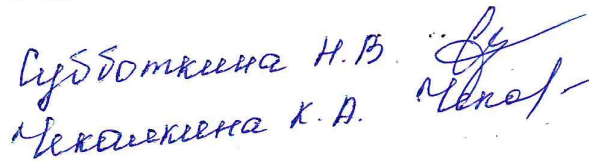 Субботкина Н.В.
Чекалкина К.А.